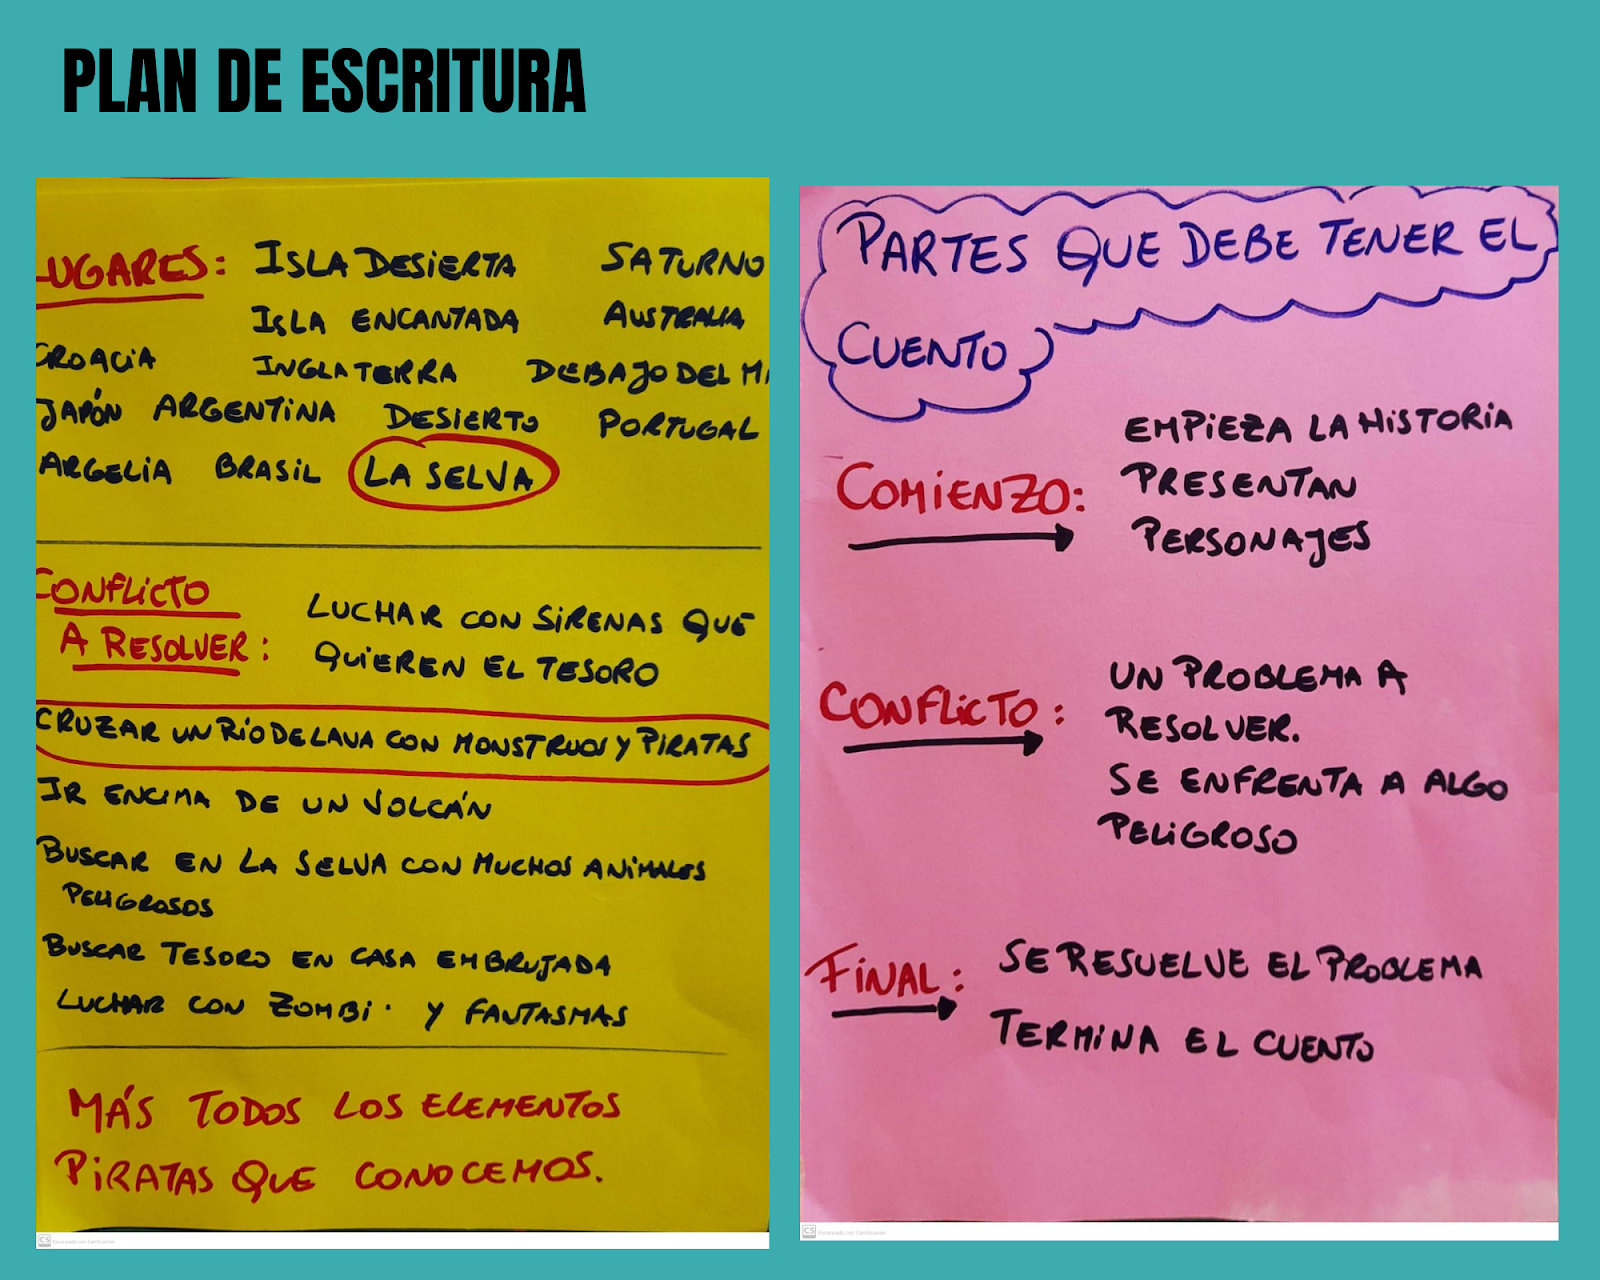 PLAN DE ESCRITURA
LUGARES: ISLA DESIERTA SATURNO
ISLA ENCANTADA AUSTRALIA
CROACIA INGLATERRA DEBAJO DEL
JAPÓN ARGENTINA DESIERTO PORTUGAL
ARGELIA BRASIL LA SELVA
CONFLICTO
A RESOLVER:
LUCHAR CON SIRENAS QUE
QUIEREN EL TESORO
CRUZAR UN RÍO DE LAVA CON MONSTRUOS Y PIRATAS
IR ENCIMA DE UN VOLCÁN
BUSCAR EN LA SELVA CON MUCHOS ANIMALES
PELIGROSOS
BUSCAR TESORO EN CASA EMBRUJADA
LUCHAR CON ZOMBI. Y FANTASMAS
MÁS TODOS LOS ELEMENTOS
PIRATAS QUE CONOCEMOS.
CS Escaneado con CamScanner
PARTES QUE DEBE TENER EL
CUENTO
COMIENZO:
EMPIEZA LA HISTORIA
PRESENTAN
PERSONAJES
CONFLICTO:
UN PROBLEMA A
RESOLVER.
SE ENFRENTA A ALGO
PELIGROSO
FINAL:
SE RESUELVE EL PROBLEMA
TERMINA EL CUENTO
CS Escaneado con CamScanner